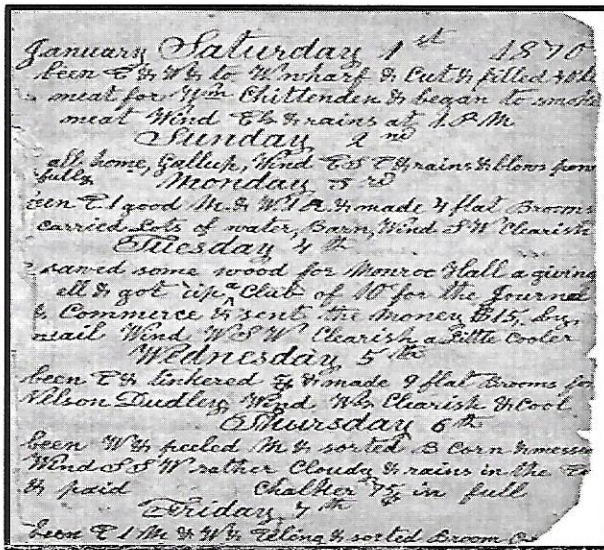 January Saturday 1st 1870
been E & W & to Wwharf & Cut & filled
meat for Wm Chittenden & began to smoke
meat Wind E & rains at 1 P M
Sunday 2nd
all home, Gallup, Wind E S E & rains & blows pow
fully Monday 3rd
een E 1 good M & W 1 & made 4 flat Brooms
carried Lots of water, Barn, Wind S W Clearish
Tuesday 4th
sawed some wood for Monroe Hall a giving
ell & got up a Club of 10 for the Journal
& Commerce & sent the money $15, by
mail Wind W S W Clearish a Little Cooler
Wednesday 5th
been E & tinkered & made 9 flat Brooms for
Nelson Dudley Wind W Clearish & Cool
Thursday 6th
been W & peeled M & sorted B Corn &
Wind S S W rather Cloudy & rains in the
& paid Chalker 75 in full
Friday 7th
been E 1 M & W & & sorted Broom